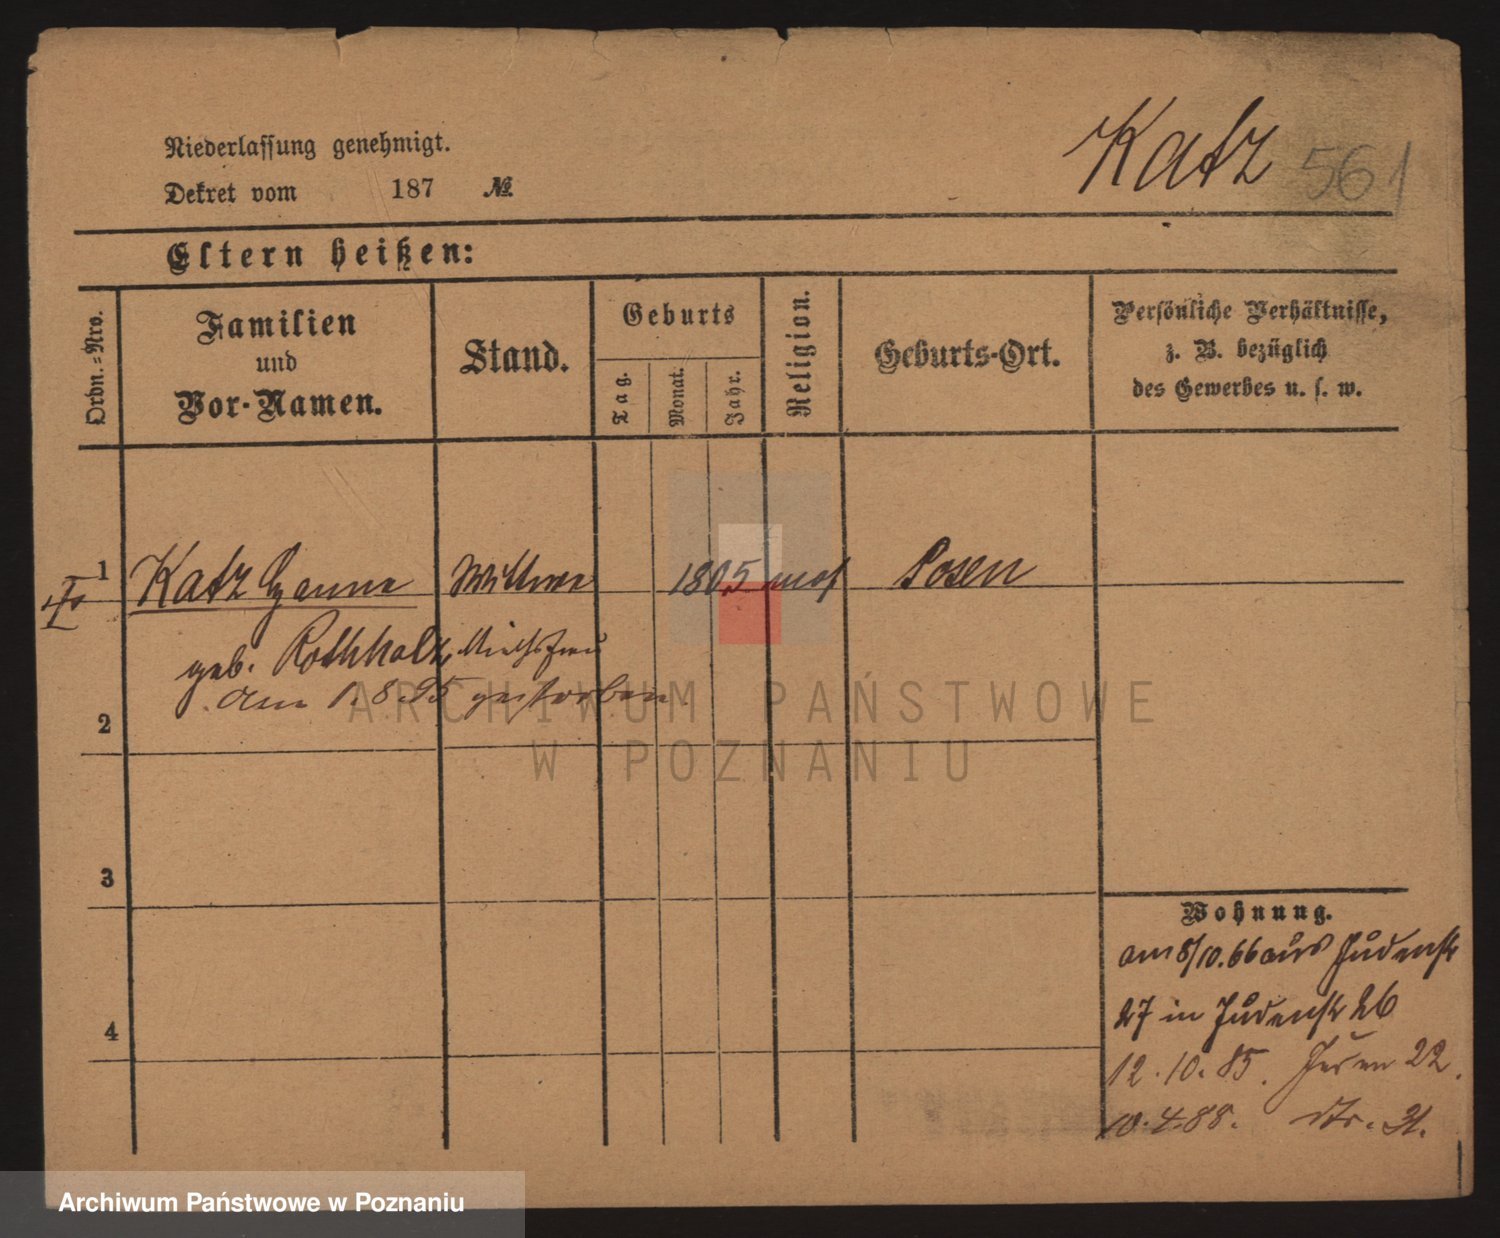 Niederlassung genehmigt.
Dekret vom 187 №
Katz 561
Eltern heißen:
Ordn.=Nro.
Familien
und
Vor-Namen.
Stand.
Geburts
Tag.
Monat.
Jahr.
Religion.
Geburts-Ort.
Persönliche Verhältnisse,
z. B. bezüglich
des Gewerbes u. s. w.
1 Katz Hanne Wittwe 1805 mos Posen
geb. Rothholz,
am 1.8.95 gestorben.
2
3
4
Wohnung.
am 8/10.66 aus Judenstr
27 in Judenstr 26
12.10.85. Juden 22.
10.4.88. dto. 31.
ARCHIWUM PAŃSTWOWE
W POZNANIU
Archiwum Państwowe w Poznaniu